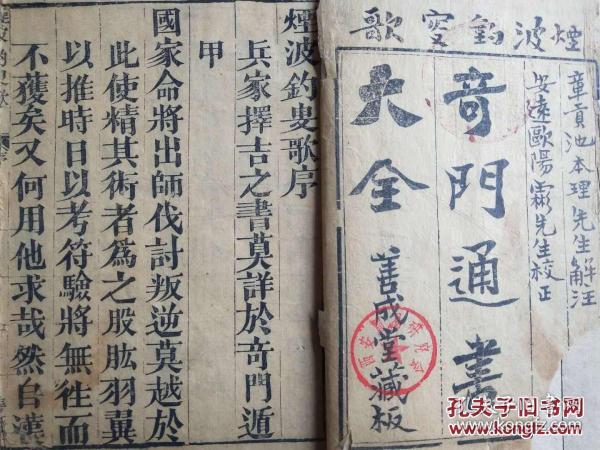 煙波釣叟歌
章貢池本理先生解注
安遠歐陽彬先生校正
奇門通書
大全
善成堂藏板
煙波釣叟歌序
兵家擇吉之書莫詳於奇門遁
甲
國家命將出師伐討叛逆莫越於
此使精其術者為之股肱羽翼
以推時日以考符驗將無往而
不獲矣又何用他求哉然自漢
孔夫子旧书网